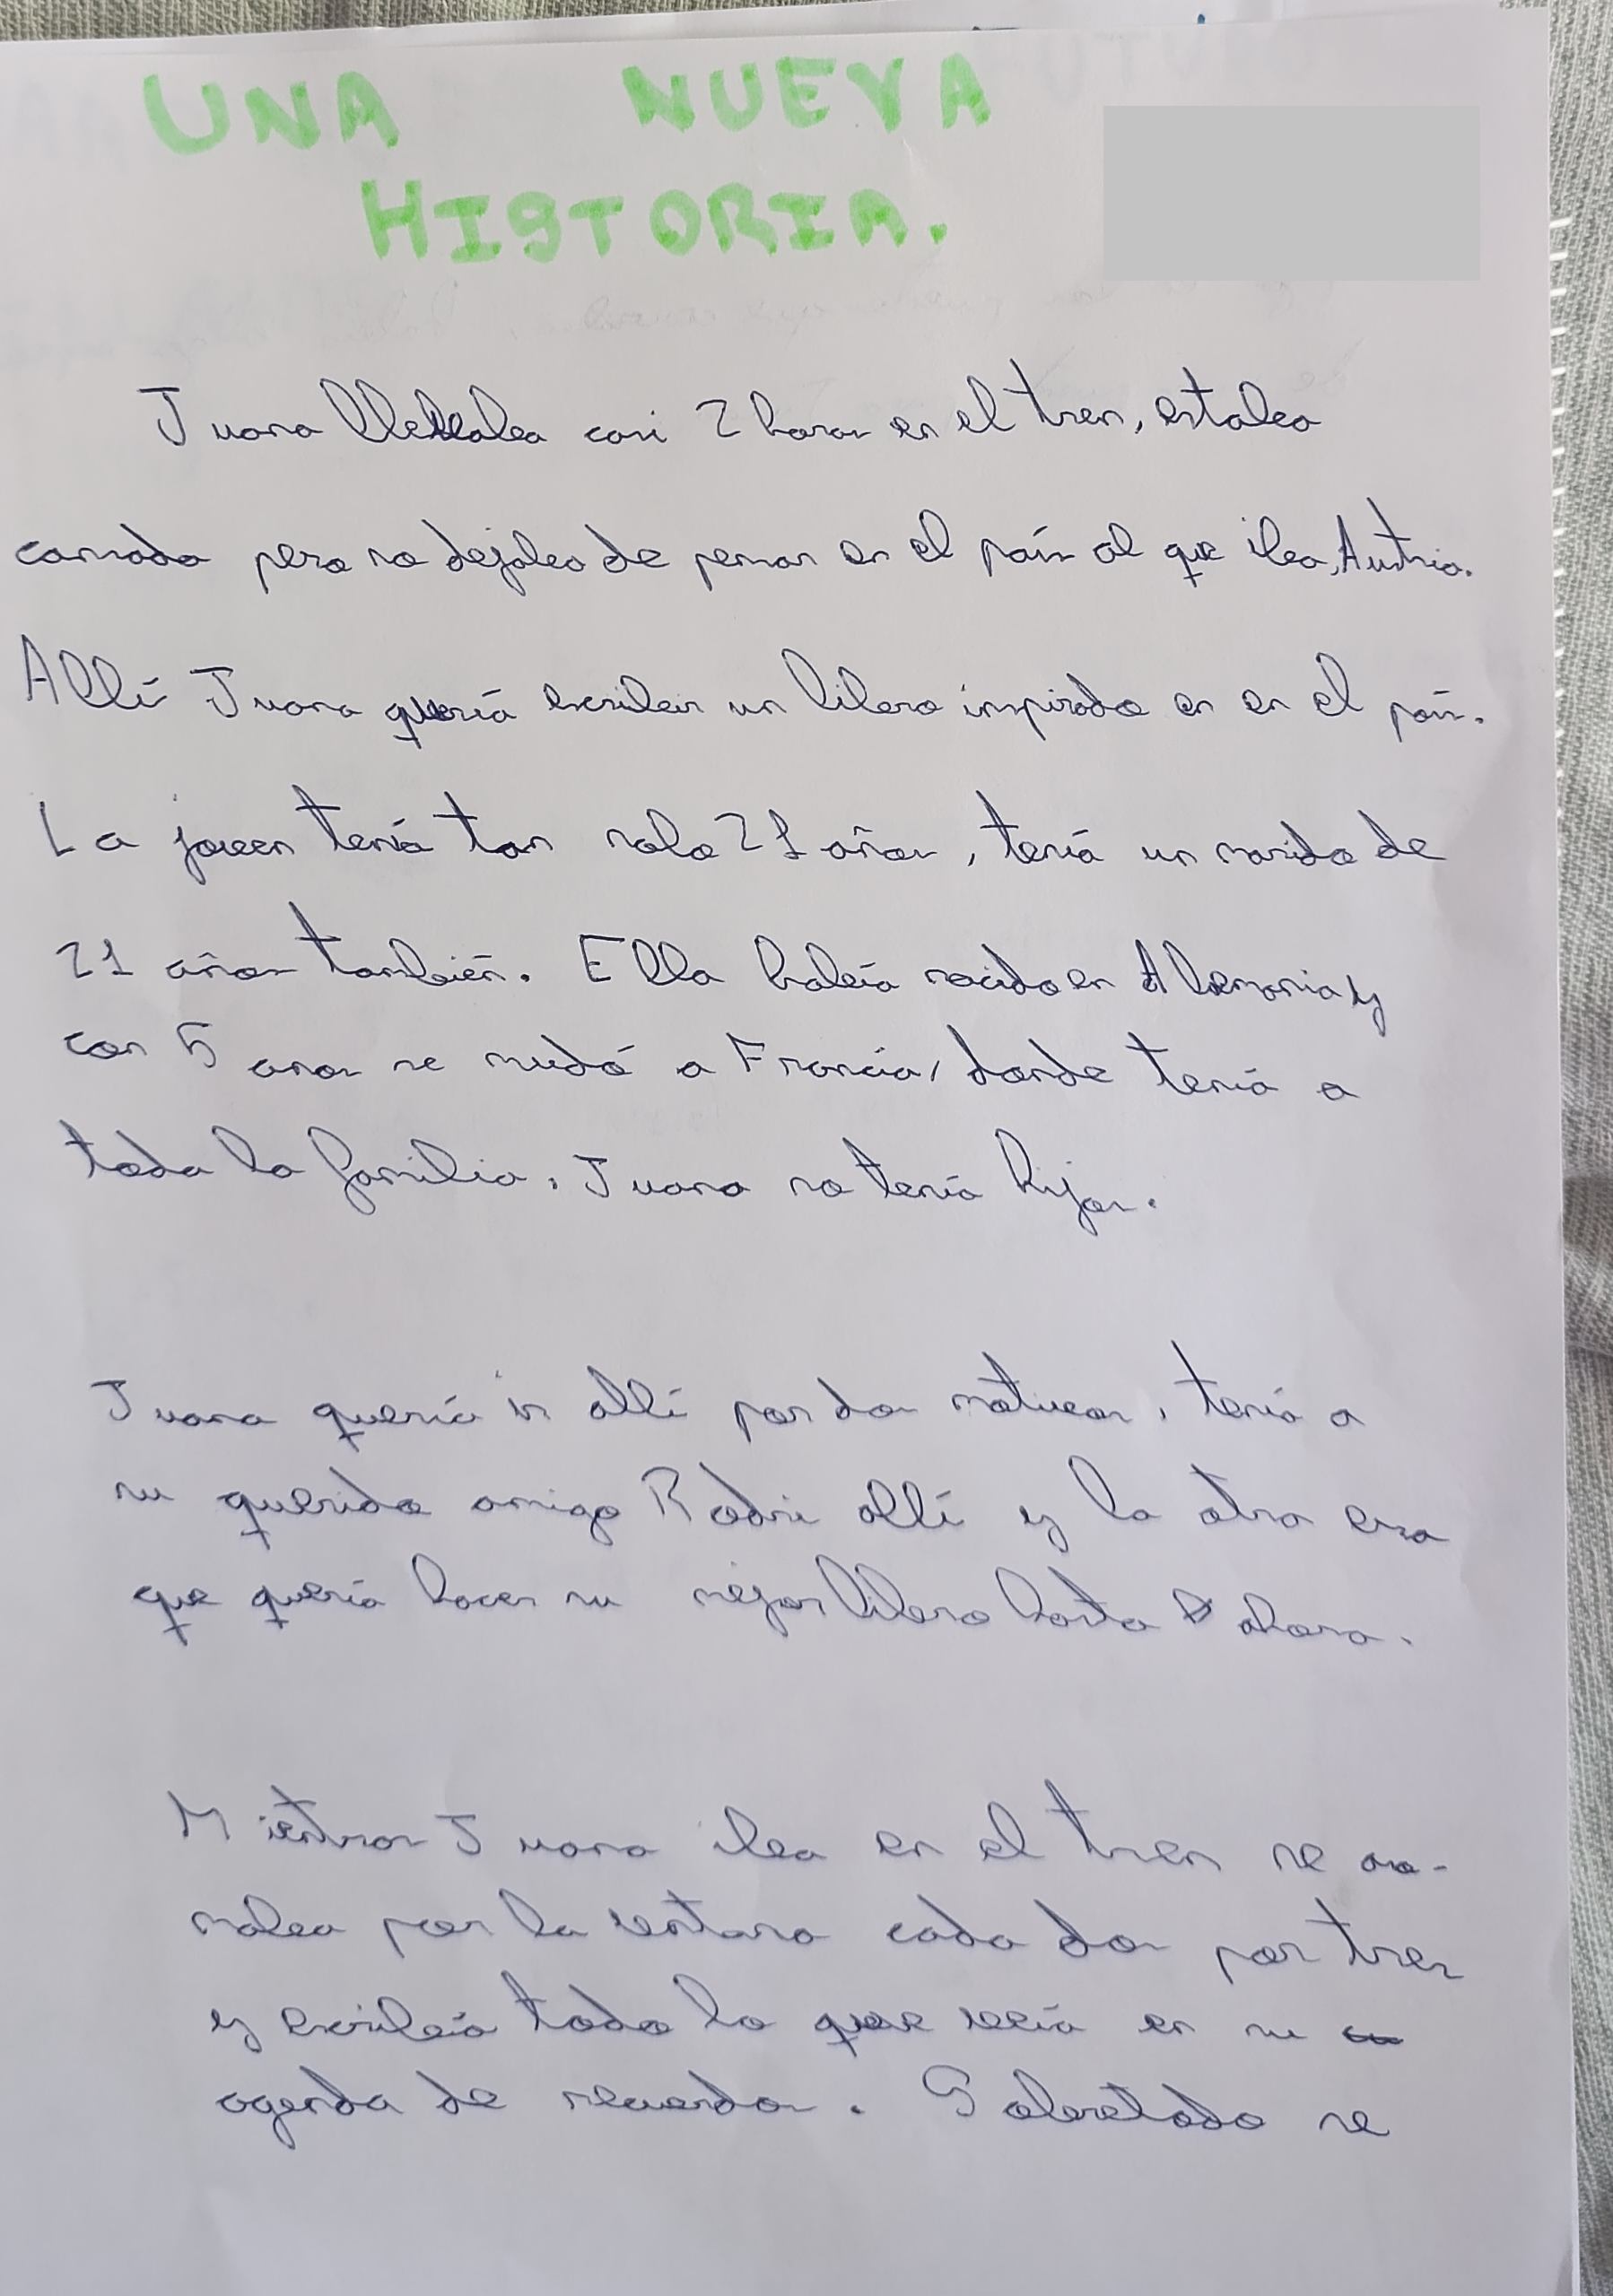 UNA NUEVA
HISTORIA.
Juana llevaba casi 2 horas en el tren, estaba
cansada pero no dejaba de pensar en el país al que iba, Austria.
Allí Juana quería escribir un libro inspirado en en el país.
La joven tenía tan solo 21 años, tenía un marido de
21 años también. Ella había nacido en Alemania y
con 5 anos se mudó a Francia, donde tenía a
toda la familia. Juana no tenía hijos.
Juana quería ir allí por dos motivos, tenía a
su querido amigo Rodri allí y la otra era
que quería hacer su mejor libro hasta ahora.
Mientras Juana iba en el tren se aso-
maba por la ventana cada dos por tres
y escribía todo lo que veía en su
agenda de recuerdos. Sobretodo se